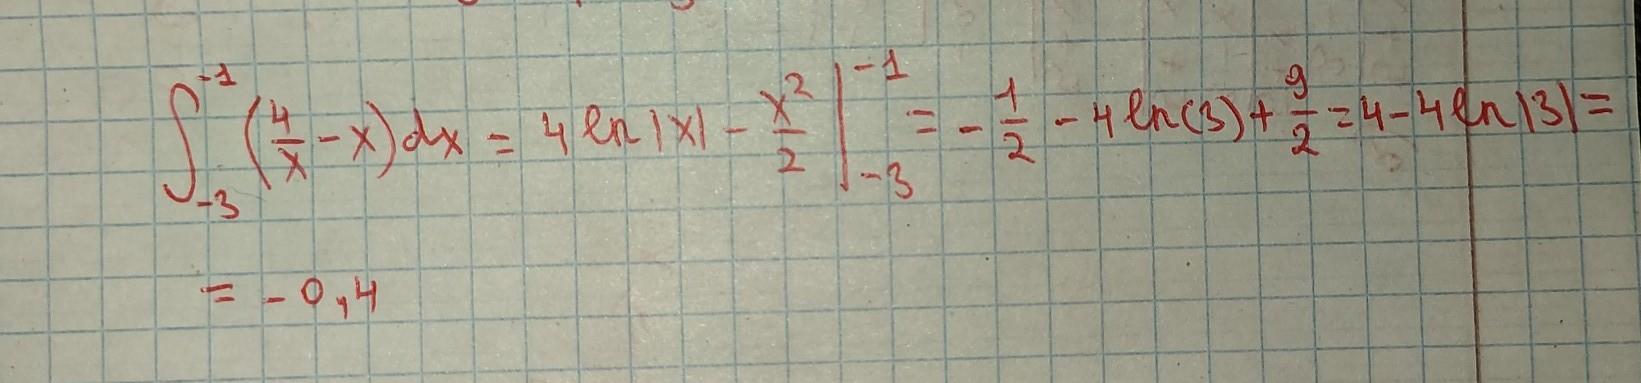 ∫_{-3}^{-1} (4/x - x) dx = 4 ln |x| - x²/2 |_{-3}^{-1} = - 1/2 - 4 ln(3) + 9/2 = 4 - 4 ln |3| =
= - 0,4